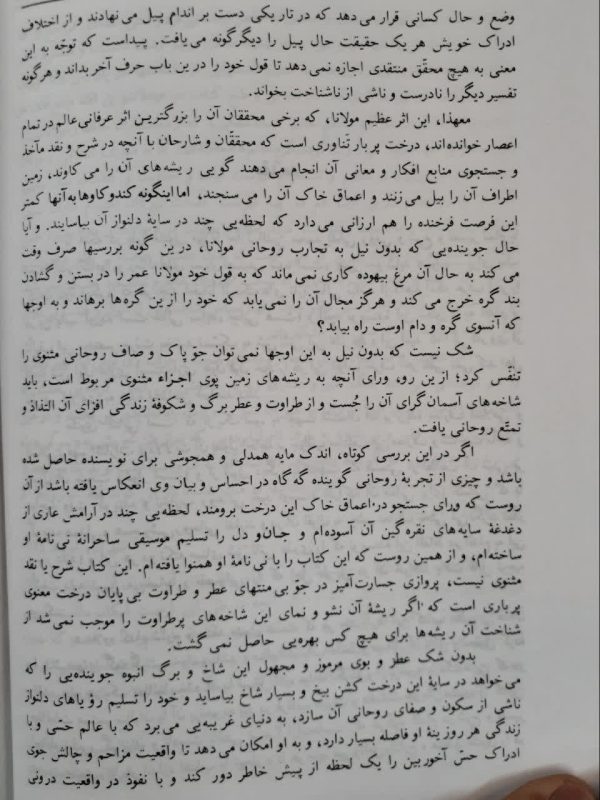 وضع و حال کسانی قرار می‌دهد که در تاریکی دست بر اندام پیل می‌نهادند و از اختلاف
ادراک خویش هر یک حقیقت حال پیل را دیگرگونه می‌یافت. پیداست که توجّه به این
معنی به هیچ محقّق منتقدی اجازه نمی‌دهد تا قول خود را درین باب حرف آخر بداند و هرگونه
تفسیر دیگر را نادرست و ناشی از ناشناخت بخواند.
معهذا، این اثر عظیم مولانا، که برخی محققان آن را بزرگترین اثر عرفانی عالم در تمام
اعصار خوانده‌اند، درخت پربار تناوری است که محققّان و شارحان با آنچه در شرح و نقد مآخذ
و جستجوی منابع افکار و معانی آن انجام می‌دهند گویی ریشه‌های آن را می‌کاوند، زمین
اطراف آن را بیل می‌زنند و اعماق خاک آن را می‌سنجند، اما اینگونه کندوکاوها به آنها کمتر
این فرصت فرخنده را هم ارزانی می‌دارد که لحظه‌یی چند در سایهٔ دلنواز آن بیاسایند. و آیا
حال جوینده‌یی که بدون نیل به تجارب روحانی مولانا، درین گونه بررسیها صرف وقت
می‌کند به حال آن مرغ بیهوده کاری نمی‌ماند که به قول خود مولانا عمر را در بستن و گشادن
بند گره خرج می‌کند و هرگز مجال آن را نمی‌یابد که خود را ازین گره‌ها برهاند و به اوجها
که آنسوی گره و دام اوست راه بیابد؟
شک نیست که بدون نیل به این اوجها نمی‌توان جوّ پاک و صاف روحانی مثنوی را
تنفّس کرد؛ ازین رو، ورای آنچه به ریشه‌های زمین پوی اجزاء مثنوی مربوط است، باید
شاخه‌های آسمان‌گرای آن را جُست و از طراوت و عطر برگ و شکوفهٔ زندگی افزای آن التذاذ و
تمتّع روحانی یافت.
اگر در این بررسی کوتاه، اندک مایه همدلی و همجوشی برای نویسنده حاصل شده
باشد و چیزی از تجربهٔ روحانی گوینده گه گاه در احساس و بیان وی انعکاس یافته باشد از آن
روست که ورای جستجو در اعماق خاک این درخت برومند، لحظه‌یی چند در آرامش عاری از
دغدغهٔ سایه‌های نقره‌گین آن آسوده‌ام و جان‌و دل را تسلیم موسیقی ساحرانهٔ نی‌نامهٔ او
ساخته‌ام، و از همین روست که این کتاب را با نی‌نامهٔ او همنوا یافته‌ام. این کتاب شرح یا نقد
مثنوی نیست، پروازی جسارت‌آمیز در جوّ بی‌منتهای عطر و طراوت بی‌پایان درخت معنوی
پرباری است که اگر ریشهٔ آن نشو و نمای این شاخه‌های پرطراوت را موجب نمی‌شد از
شناخت آن ریشه‌ها برای هیچ کس بهره‌یی حاصل نمی‌گشت.
بدون شک عطر و بوی مرموز و مجهول این شاخ و برگ انبوه جوینده‌یی را که
می‌خواهد در سایهٔ این درخت گشن بیخ و بسیار شاخ بیاساید و خود را تسلیم رؤیاهای دلنواز
ناشی از سکون و صفای روحانی آن سازد، به دنیای غریبه‌یی می‌برد که با عالم حسّی و با
زندگی هر روزینهٔ او فاصله بسیار دارد، و به او امکان می‌دهد تا واقعیت مزاحم و چالش جوی
ادراک حسّ آخوربین را یک لحظه از پیش خاطر دور کند و با نفوذ در واقعیت درونی